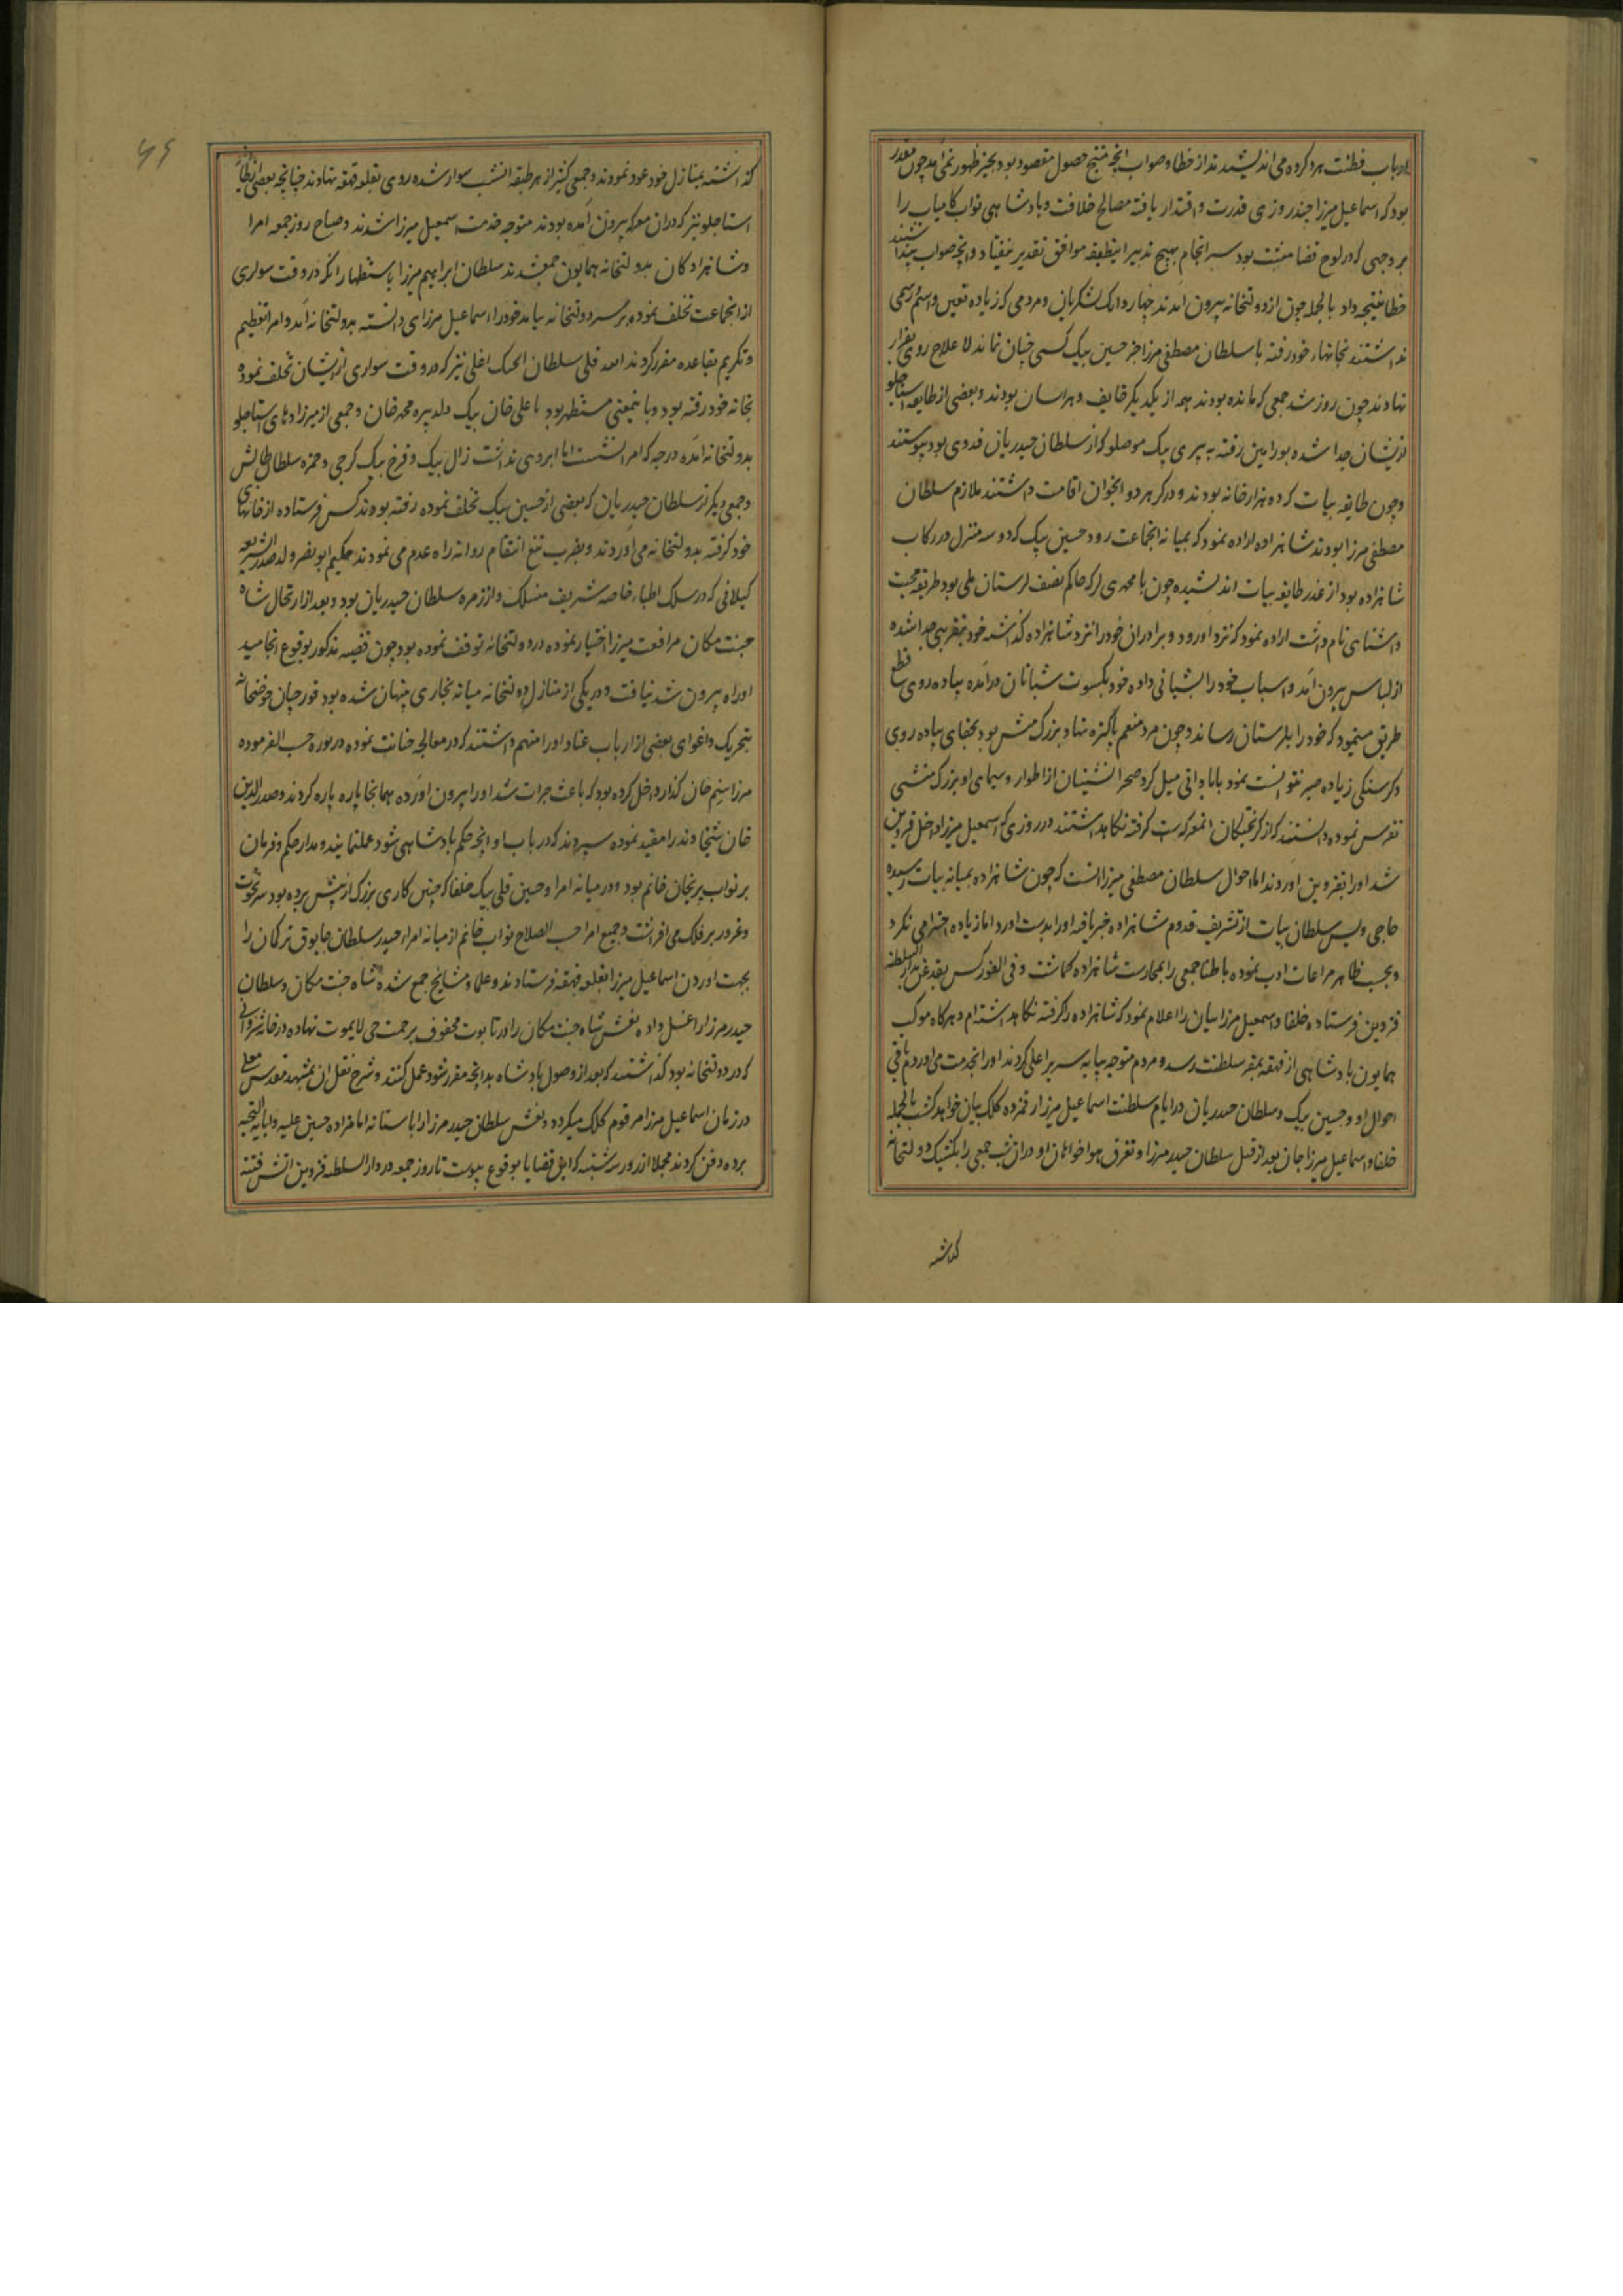 ارباب فطنت هرد کرده می اندیشیدند از خطا و صواب انچه منتج حصول مقصود بود بحیز ظهور نمی امد چون مقدر
بود که اسماعیل میرزا چند روزی قدرت و اقتدار یافته مصالح خلافت و پادشاهی نواب کامیاب را
بر وجهی که در لوح قضا مثبت بود سرانجام هیچ تدبیر اینطبقه موافق تقدیر نیفتاد و انچه صواب پنداشتند
خطا نتیجه داد بالجمله چون از دولتخانه بیرون آمدند چهار دانک لشکریان و مردمی که زیاده تعین و اسم و رسمی
نداشتند بخانهاء خود رفته با سلطان مصطفی میرزا جز حسین بیک کسی چنان نماند لاعلاج روی بفرار
نهادند چون روز شد جمعی که مانده بودند همه از یکدیگر خایف و هراسان بودند و بعضی از طایفه استاجلو
ازیشان جدا شده بورامین رفته به پیری بیک موصلو که از سلطان حیدریان فدوی بود پیوستند
و چون طایفه بیات که ده هزار خانه بودند و در کرهرود انجوان اقامت داشتند ملازم سلطان
مصطفی میرزا بودند شاهزاده اراده نمود که بمیانه انجماعت رود حسین بیک که دو سه منزل در رکاب
شاهزاده بود از غدر طایفه بیات اندیشیده چون با محمدی لرکه حاکم نصف لرستان ملی بود طریقه محبت
و اشنای تام داشت اراده نمود که نزد او رود و برادران خود را نزد شاهزاده گذاشته خود بتقریبی جدا شده
از لباس بیرون آمد و اسباب خود را بشبانی داده خود بکسوت شبانان درآمده پیاده روی قطع
طریق مینمود که خود را بلرستان رساند و چون مرد منعم پاکیزه نهاد بزرک منش بود بجفای پیاده روی
و کرسنکی زیاده صبر نتوانست نمود بابادانی میل کرد صحرانشینان از اطوار و سیمای او بزرک منشی
تفرس نموده دانستند که از کریختکان انمعرکه است کرفته نکاهداشتند در روزی که اسمعیل میرزا داخل قزوین
شد او را بقزوین اوردند اما احوال سلطان مصطفی میرزا انست که چون شاهزاده بمیانه بیات رسیده
حاجی ویس سلطان بیات از تشریف قدوم شاهزاده خبر یافته او را بدست اورد اما زیاده احترامی نکرد
و بحسب ظاهر مراعات ادب نموده باطنا جمعی را بمحارست شاهزاده کماشت و فی الفور کس بقدغن بدار السلطنه
قزوین فرستاده خلفا و اسمعیل میرزائیان را اعلام نمود که شاهزاده را کرفته نکاهداشته ام و هرکاه موکب
همایون پادشاهی از قهقهه بمقر سلطنت رسد و مردم متوجه پایه سریر اعلی کردند او را بخدمت می اورد و باقی
احوال او و حسین بیک و سلطان حیدریان در ایام سلطنت اسماعیل میرزا رقمزده کلک بیان خواهد کشت بالجمله
خلفا و اسماعیل میرزاجان بعد از قتل سلطان حیدر میرزا و تفرق هواخواهان او در ان شب جمعی را بکشیک دولتخانه
کذاشته
کذاشته بمنازل خود عود نمودند و جمعی کثیر از هر طبقه انشب سوار شده روی بقلعه قهقهه نهادند چنانچه بعضی از طایفه
استاجلو نیز که دران معرکه بیرون آمده بودند متوجه خدمت اسمعیل میرزا شدند و صباح روز جمعه امرا
و شاهزادکان بدولتخانه همایون جمع شدند سلطان ابراهیم میرزا باستظهار انکه در وقت سواری
از انجماعت تخلف نموده بر سر دولتخانه نیامد خود را اسماعیل میرزای دانسته بدولتخانه آمد و امرا تعظیم
و تکریم بقاعده مقرر کردند قلی سلطان اغلی نیز که در وقت سواری ازیشان تخلف نموده
بخانه خود رفته بود و باینمعنی مستظهر بود با علی خان بیک ولد پیره محمد خان و جمعی از میرزادهای استاجلو
بدولتخانه آمده درجه که امرا نشست اما ابروی نداشت زال بیک و فرخ بیک کرجی و حمزه سلطان طالش
و جمعی دیکر از سلطان حیدریان که بعضی از حسین بیک تخلف نموده رفته بودند کس فرستاده از خانهای
خود کرفته بدولتخانه می اوردند و بضرب تیغ انتقام روانه راه عدم می نمودند حکیم ابونصر ولد صدر الشریعه
کیلانی که در سلک اطباء خاصه شریف منسلک و از زمره سلطان حیدریان بود و بعد از ارتحال شاه
جنت مکان مرافقت میرزا اختیار نموده در دولتخانه توقف نموده بود چون قضیه مذکور بوقوع انجامید
او راه بیرون شد نیافت و در یکی از منازل دولتخانه میانه بخاری پنهان شده بود قورچیان حوضخانه
بتحریک و اغوای بعضی از ارباب عناد او را متهم داشتند که در معالجه خیانت نموده در نوره حسب الفرموده
میرزا سم خان کذار داخل کرده بود که باعث جرات شد او را بیرون اورده همانجا پاره پاره کردند و صدرالدین
خان شیخاوند را مقید نموده سپردند که در باب او انچه حکم پادشاهی شود عمل نمایند و مدار حکم و فرمان
بر نواب پریخان خانم بود و در میانه امرا و حسین قلی بیک خلفا که چنین کاری بزرک از پیش برده بود سر نخوت
و غرور بر فلک می افراشت و جمیع امرا حسب الصلاح نواب خانم از میانه امراء حیدر سلطان چابوق ترکمان را
بجهت اوردن اسماعیل میرزا بقلعه قهقهه فرستادند و علما و مشایخ جمع شده شاه جنت مکان و سلطان
حیدر میرزا را غسل داده نعش شاه جنت مکان را در تابوت محفوف برحمت حی لایموت نهاده در خانه شروانی
که در دولتخانه بود کذاشتند که بعد از وصول پادشاه بدانچه مقرر شود عمل کنند و شرح نقل ان بمشهد مقدس معلی
در زمان اسماعیل میرزا مرقوم کلک میکردد و نعش سلطان حیدر میرزا را باستانه امامزاده حسین علیه و ابائه التحیه
برده دفن کردند مجملا از روز سه شنبه که این قضایا بوقوع پیوست تا روز جمعه در دار السلطنه قزوین اتش فتنه